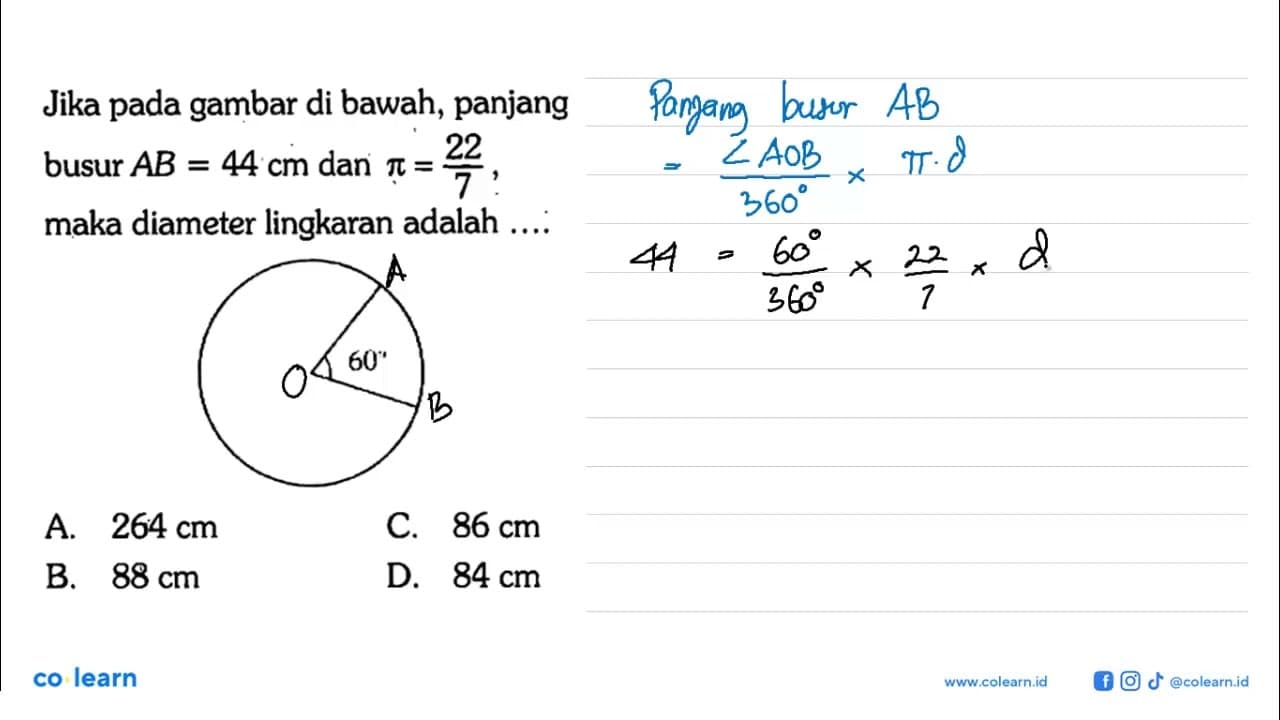 Jika pada gambar di bawah, panjang
busur AB = 44 cm dan π = 22/7,
maka diameter lingkaran adalah ....
A
O
60°
B
A. 264 cm
C. 86 cm
B. 88 cm
D. 84 cm
Panjang busur AB
= ∠AOB/360° × π.d
44 = 60°/360° × 22/7 × d
co learn
www.colearn.id
@colearn.id